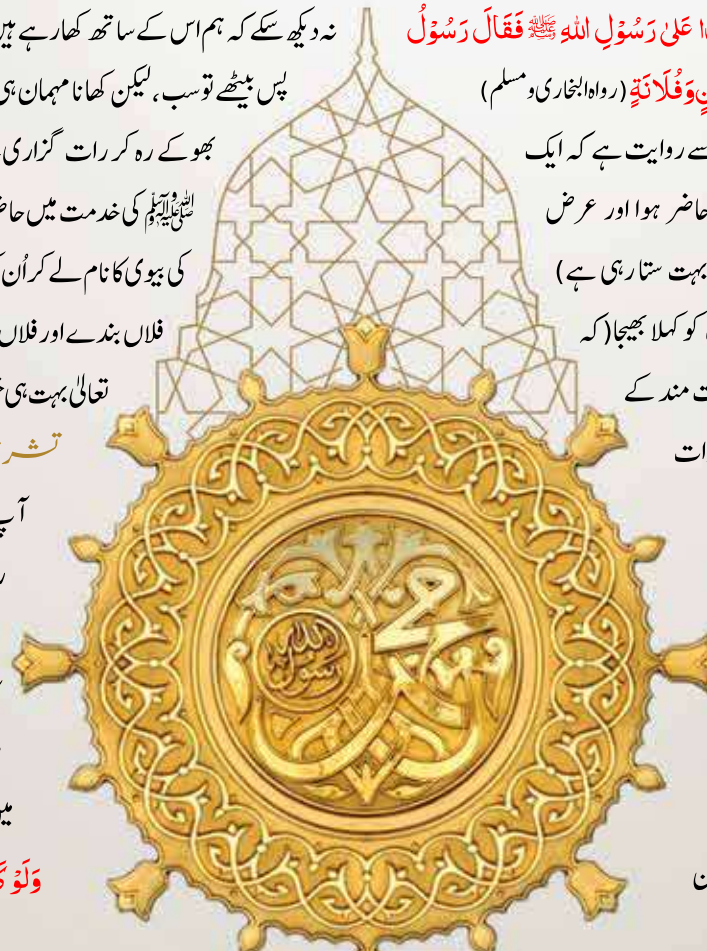 عَلیٰ رَسُوْلِ اللهِ ﷺ فَقَالَ رَسُوْلُ
وَفُلَانَةٍ (رواہ البخاری و مسلم)
سے روایت ہے کہ ایک
حاضر ہوا اور عرض
بہت ستا رہی ہے)
کو کہلا بھیجا (کہ
مند کے
نہ دیکھ سکے کہ ہم اس کے ساتھ کھا رہے ہیں
پس بیٹھے تو سب، لیکن کھانا مہمان ہی
بھوکے رہ کر رات گزاری
ﷺ کی خدمت میں
کی بیوی کا نام لے کر اُن
فلاں بندے اور فلاں
تعالیٰ بہت ہی
آپ
وَلَوْ
محمد
رسول الله